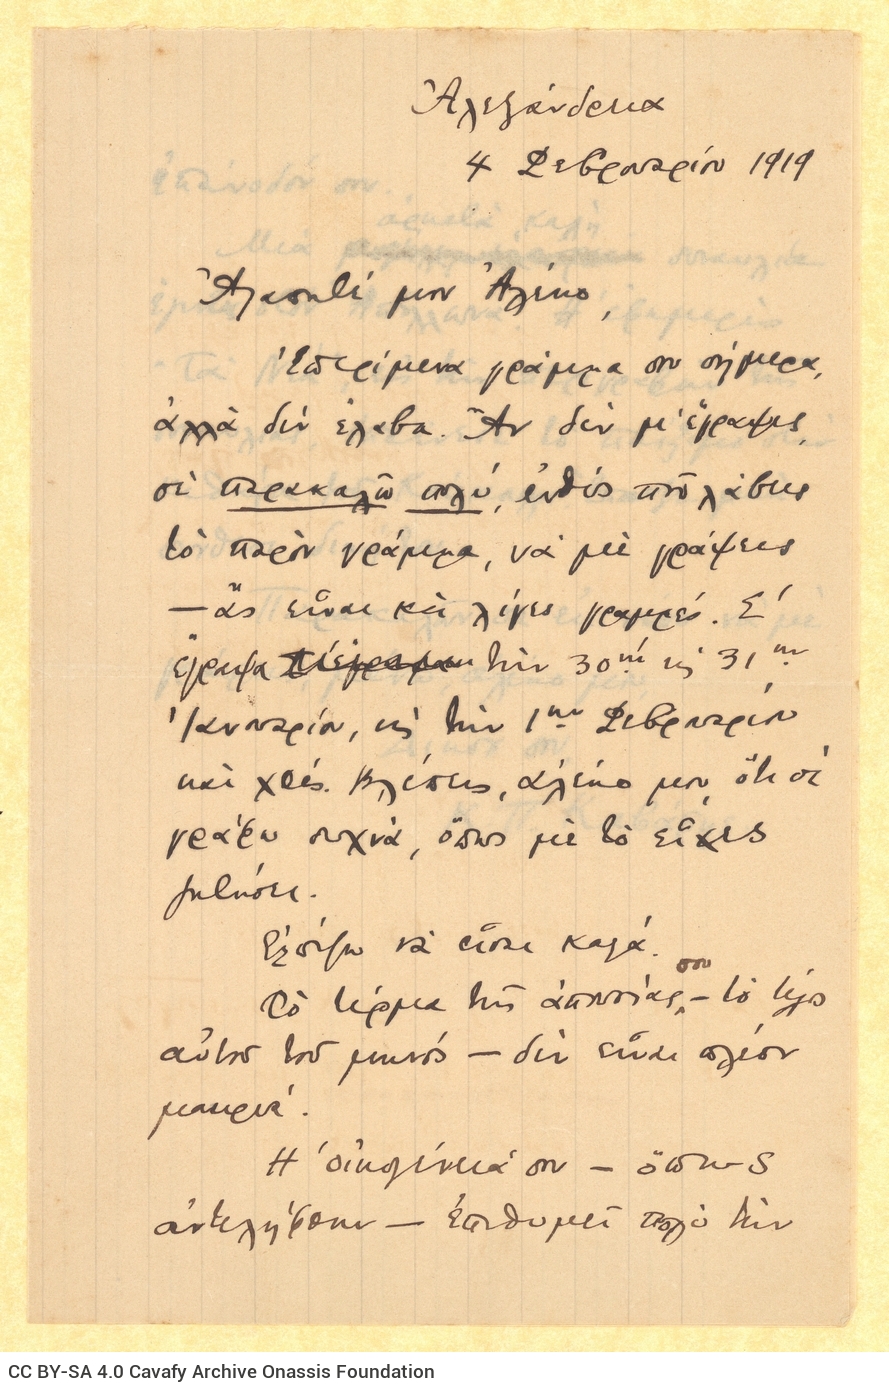 Ἀλεξάνδρεια
4 Φεβρουαρίου 1919
Ἀγαπητέ μου Ἀλέκο,
Ἐπερίμενα γράμμα σου σήμερα,
ἀλλὰ δὲν ἔλαβα. Ἂν δὲν μ' ἔγραψες,
σὲ παρακαλῶ πολύ, εὐθὺς ποῦ λάβεις
τὸ παρὸν γράμμα, νὰ μὲ γράψεις
— ἂς εἶναι καὶ λίγες γραμμές. Σ'
ἔγραψα τὴν 30ην κ 31ην
Ἰανουαρίου, κ τὴν 1ην Φεβρουαρίου
καὶ χθές. Βλέπεις, Ἀλέκο μου, ὅτι σὲ
γράφω συχνά, ὅπως μὲ τὸ εἶχες
ζητήσει.
Ἐλπίζω νὰ εἶσαι καλά.
Τὸ τέρμα τῆς ἀπουσίας σου — τὸ τέλος
αὐτοῦ τοῦ μηνός — δὲν εἶναι πλέον
μακριά.
Η οἰκογένειά σου — ὅπως
ἀντελήφθην — ἐπιθυμεῖ πολὺ τὴν
CC BY-SA 4.0 Cavafy Archive Onassis Foundation